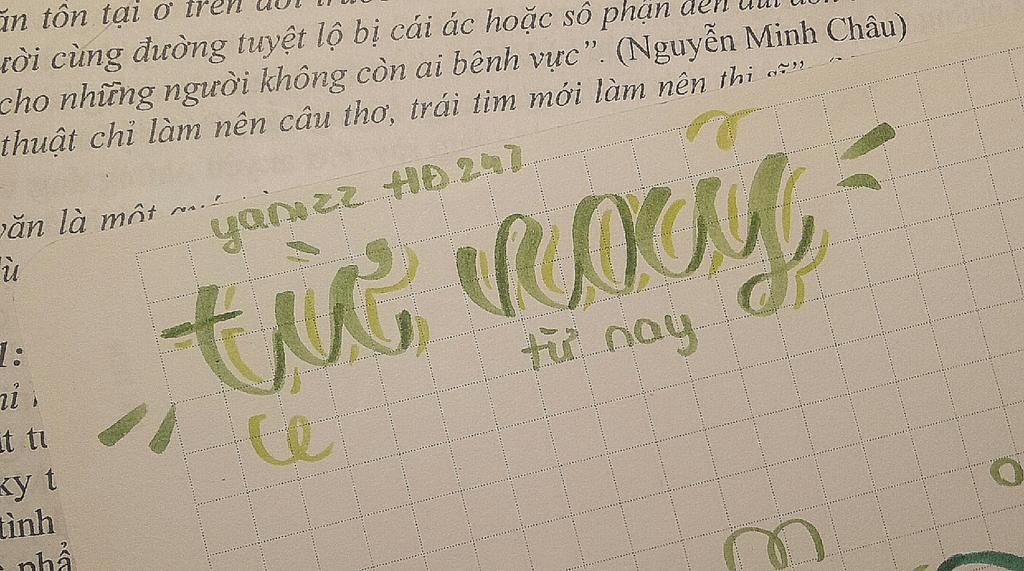 ăn tồn tại ở trên đời trước
cùng đường tuyệt lộ bị cái ác hoặc số phận đen đủi
cho những người không còn ai bênh vực”. (Nguyễn Minh Châu)
thuật chỉ làm nên câu thơ, trái tim mới làm nên thi sĩ”
văn là một
yamzz HĐ247
từ nay
từ nay
1:
ky t
tình
phẩ